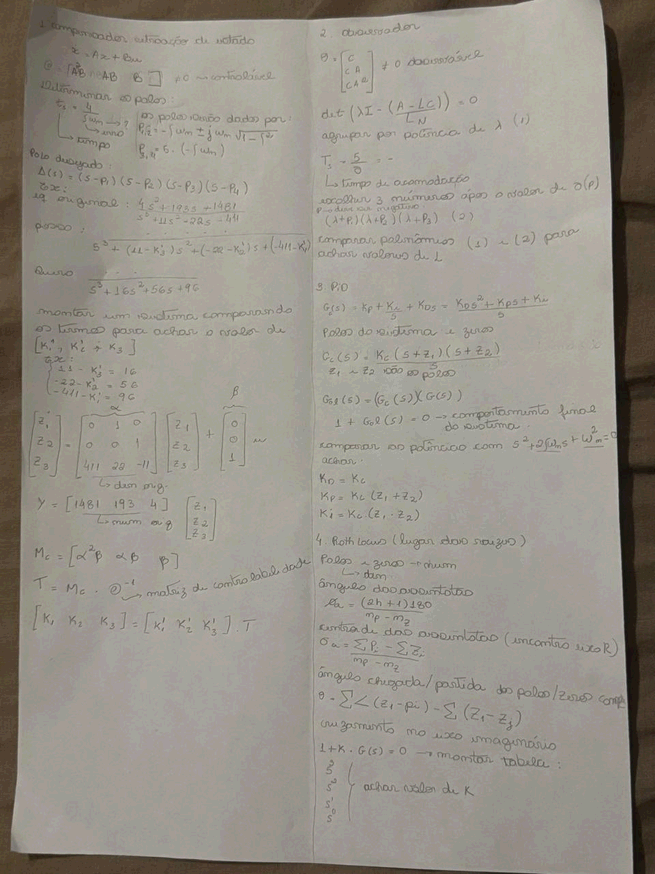 1. compensador retroação de estado
ẋ = Ax + Bu
C = [A²B AB B] ≠ 0 → controlável
Determinar os polos:
ts = 4/(ζωn) → ?
→ erro
→ tempo
os polos serão dados por:
P1/2 = -ζωn ± jωn √(1-ζ²)
P3,4 = 5 · (-ζωn)
Polo desejado:
Δ(s) = (s-P1)(s-P2)(s-P3)(s-P4)
Ex:
eq original: (4s² + 193s + 1481)/(s³ + 11s² - 22s - 411)
posso: s³ + (11 - K3')s² + (-22 - K2')s + (-411 - K1')
Quero s³ + 16s² + 56s + 96
montar um sistema comparando
os termos para achar o valor de
[K1', K2' e K3']
Ex:
11 - K3' = 16
-22 - K2' = 56
-411 - K1' = 96
α β
[ż1 ż2 ż3] = [0 1 0; 0 0 1; 411 22 -11] [z1 z2 z3] + [0 0 1] u
→ den org.
Y = [1481 193 4] [z1 z2 z3]
→ num org
Mc = [α²β αβ β]
T = Mc · C⁻¹ → matriz de controlabilidade
[K1 K2 K3] = [K1' K2' K3'] · T
2. observador
θ = [C CA CA²] ≠ 0 observável
det(λI - (A - LC)) = 0
LN
agrupar por potência de λ (1)
Ts = 5/σ
→ tempo de acomodação
escolher 3 números após o valor de σ (P)
(λ+P1)(λ+P2)(λ+P3) (2)
comparar polinômios (1) e (2) para
achar valores de L
3. PID
G(s) = KP + Ki/s + KDs = (KDs² + KPs + Ki)/s
Polos do sistema e zeros
Gc(s) = Kc(s+z1)(s+z2)/s
z1 e z2 são os polos
Gsl(s) = (Gc(s))(G(s))
1 + Gsl(s) = 0 → comportamento final
do sistema.
comparar as potências com s² + 2ζωns + ωn² = 0
achar:
KD = Kc
KP = Kc(z1 + z2)
Ki = Kc(z1 · z2)
4. Roth Locus (lugar das raízes)
Polos e zeros → num
→ den
ângulo das assíntotas
= (2h+1)180/(np - nz)
centroide das assíntotas (encontro eixo R)
σa = (ΣPi - ΣZi)/(np - nz)
ângulo chegada/partida dos polos/zeros comp
θ = Σ∠(z1 - pi) - Σ(z1 - zj)
cruzamento no eixo imaginário
1 + K · G(s) = 0 → montar tabela:
s³
s²
s¹
s⁰
achar valor de K